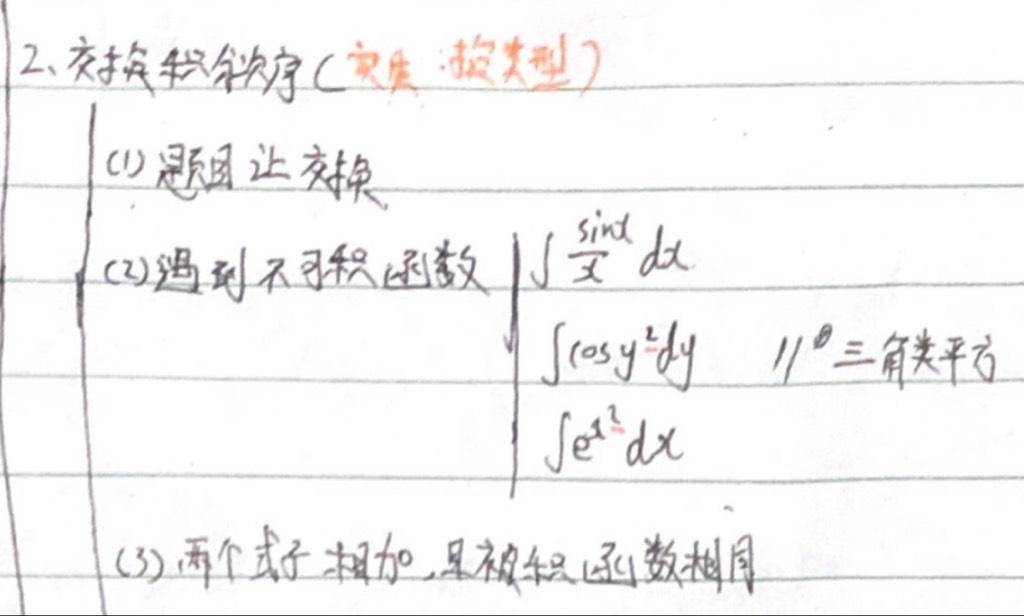 2、交换积分次序(实质:换类型)
(1)题目让交换
(2)遇到不可积函数 ∫ sinx/x dx
∫cosy²dy //θ 三角类平方
∫e^x² dx
(3)两个式子相加,且被积函数相同